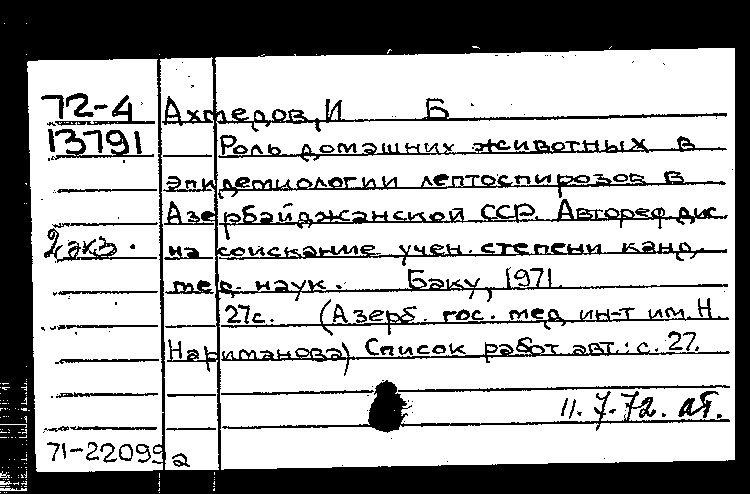 72-4 Ахмедов, И Б
13791 Роль домашних животных в
эпидемиологии лептоспирозов в
Азербайджанской ССР. Автореф дис.
2 экз. на соискание учен. степени канд.
мед. наук. Баку, 1971.
27с. (Азерб. гос. мед ин-т им. Н.
Нариманова) Список работ авт.: с. 27.
11.7.72.
71-22099 а